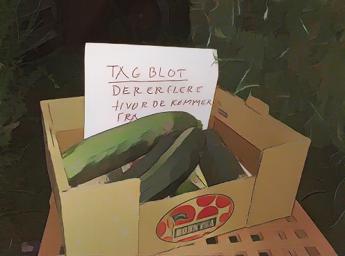 TAG BLOT
DER ER FLERE
HVOR DE KOMMER
FRA